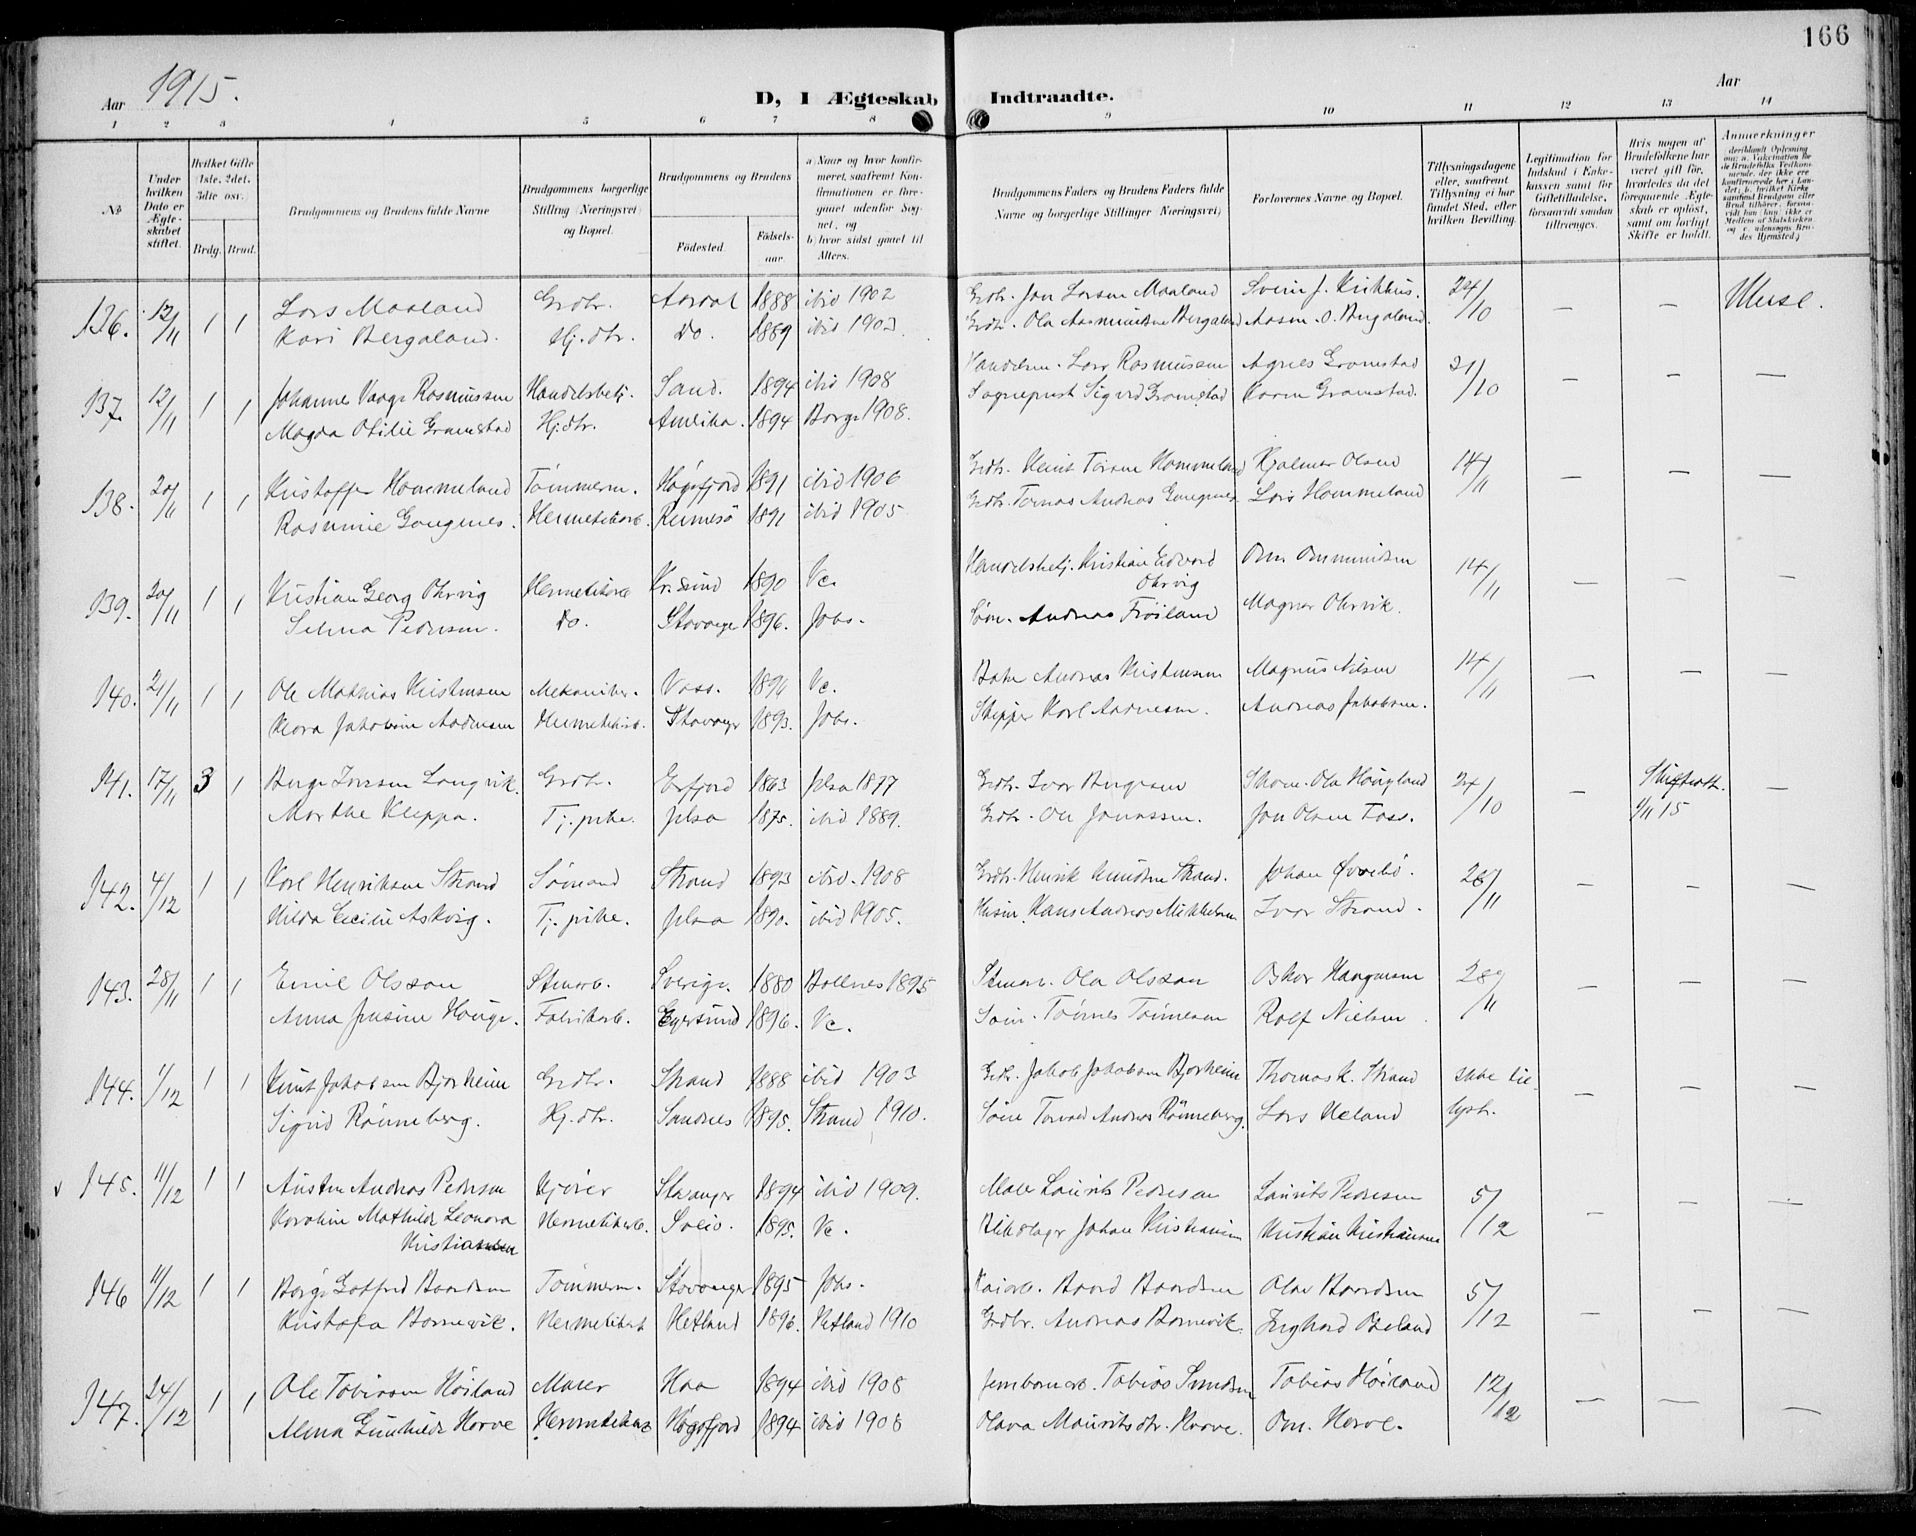 166
Aar 1915.
D, I Ægteskab Indtraadte.
Aar
1 2 3 4 5 6 7 8 9 10 11 12 13 14
No
Under hvilken Dato er Ægteskabet stiftet.
Hvilket Gifte (1ste, 2det, 3die osv.
Brdg. Brud.
Brudgommens og Brudens fulde Navne
Brudgommens borgerlige Stilling (Næringsvei) og Bopæl.
Brudgommens og Brudens
Fødested. Fødselsaar.
a) Naar og hvor konfirmeret, saafremt Konfirmationen er foregaaet udenfor Sognet, og
b) hvor sidst gaaet til Alters.
Brudgommens Faders og Brudens Faders fulde Navne og borgerlige Stillinger (Næringsvei)
Forlovernes Navne og Bopæl.
Tillysningsdagene eller, saafremt Tillysning ei har fundet Sted, efter hvilken Bevilling.
Legitimation for Indskud i Enkekassen samt for Giftetilladelse, forsaavidt saadan tiltrænges.
Hvis nogen af Brudefolkene har været gift før, hvorledes da det foregaaende Ægteskab er opløst, samt om lovligt Skifte er holdt.
Anmerkninger (deriblandt Oplysning om: a. Vakcination for de Brudefolks Vedkommende, der ikke ere konfirmerede her i Landet; b. hvilket Kirkesamfund Brudgom eller Brud tilhører, forsaavidt han (hun) ikke er Medlem af Statskirken og c. udensogns Brudes Hjemsted.)
136. 12/11 1 1 Lars Maaland Grdbr. Aardal 1888 ibid 1902 Grdbr. Jon Larsen Maaland Svein J. Kirkhus. 24/10 — — Muse.
Kari Bergaland. Hj. dtr. Do. 1889 ibid 1903. Grdbr. Ola Aasmundsen Bergaland Aasm. O. Bergaland.
137. 12/11 1 1 Johannes Vaage Rasmussen Handelsbetj. Sand. 1894 ibid 1908 Handelsm. Lars Rasmussen Agnes Gramstad 31/10 — — —
Magda Otilie Gramstad Hj. dtr. Amerika. 1894 Borge 1908. Sogneprest Sigvd Gramstad Karen Gramstad.
138. 20/11 1 1 Kristoffer Hommeland Tømmerm. Høgsfjord 1891 ibid 1906 Grdbr. Knut Torsen Hommeland Hjalmar Olsen 14/11 — — —
Rasmine Gangenes. Hermetikarb. Rennesø 1891 ibid 1905 Grdbr. Tomas Andreas Gangenes Lars Hommeland
139. 20/11 1 1 Kristian Georg Ohrvig Hermetikarb Kr.sund 1890 Vc. Handelsbetj. Kristian Edvard Ohrvig Om. Ommundsen 14/11 — — —
Selma Pedersen. Do. Stavanger 1896. Johs. Søm. Andreas Frøiland Magnar Ohrvik.
140. 21/11 1 1 Ole Mathias Kristensen Mekaniker. Voss. 1894 Vc. Andreas Kristensen Magnus Nilsen 14/11 — — —
Klara Jakobine Aadnesen Hermetikarb. Stavanger 1893. Johs. Skipper Karl Aadnesen. Andreas Jakobsen.
141. 17/11 3 1 Berge Iversen Langvik. Grdbr. Erfjord 1863 Jelsa 1877 Grdbr. Ivar Bergesen Skom. Ola Haugland 24/10 — Skifteatt. 1/11 15 —
Marthe Kleppa. Tj. pike. Jelsa 1875. ibid 1889. Grdbr. Ole Jonassen. Jon Olsen Foss.
142. 4/12 1 1 Karl Henriksen Strand Sømand Strand 1893 ibid. 1908 Grdbr. Henrik Knudsen Strand. Johan Øvrebø. 28/11 — — —
Hilda Cecilie Askvig. Tj. pike. Jelsa 1890. ibid 1905. Husm. Hans Andreas Mikkelsen Ivar Strand.
143. 28/11 1 1 Emil Olsson Stenarb. Sverige. 1880 Bollnes 1895 Stenarb. Ola Olsson Oskar Haagensen 28/11 — — —
Anna Jensine Hauge. Fabrikarb. Egersund 1896. Vc. Søm. Tønnes Tønnesen Rolf Nielsen
144. 1/12 1 1 Knut Jakobsen Bjørheim Grdbr. Strand 1888 ibid 1903 Grdbr. Jakob Jakobsen Bjørheim Thomas K. Strand — — —
Sigrid Rønneberg. Hj. dtr. Sandnes 1895. Strand 1910. Andreas Rønneberg. Lars Ueland lyst.
v 145. 11/12 1 1 Austin Andreas Pedersen Kjører Stavanger 1894 ibid 1909. Maler Laurits Pedersen Laurits Pedersen 5/12 — — —
Karoline Mathilde Leonora Kristiansen Hermetikarb. 1895. Vc. Blikslager Johan Kristiansen Kristian Kristiansen
146 11/12 1 1 Børge Gotfred Baardsen Tømmerm. Stavanger 1895 Johs. Baard Baardsen Olav Baardsen 5/12 — — —
Kristofa Bornevik. Hermetikarb Hetland 1896. Hetland 1910 Grdbr. Andreas Bornevik.
147. 24/12 1 1 Ole Tobiassen Høiland Murer Haa 1894 ibid 1908 Jernbanearb. Tobias Tobias Høiland 12/12 — — —
Alma Gunhilde Horve Hermetikarb Høgsfjord 1894 ibid 1908 Olava Mauritsdtr. Horve. Om. Horve.